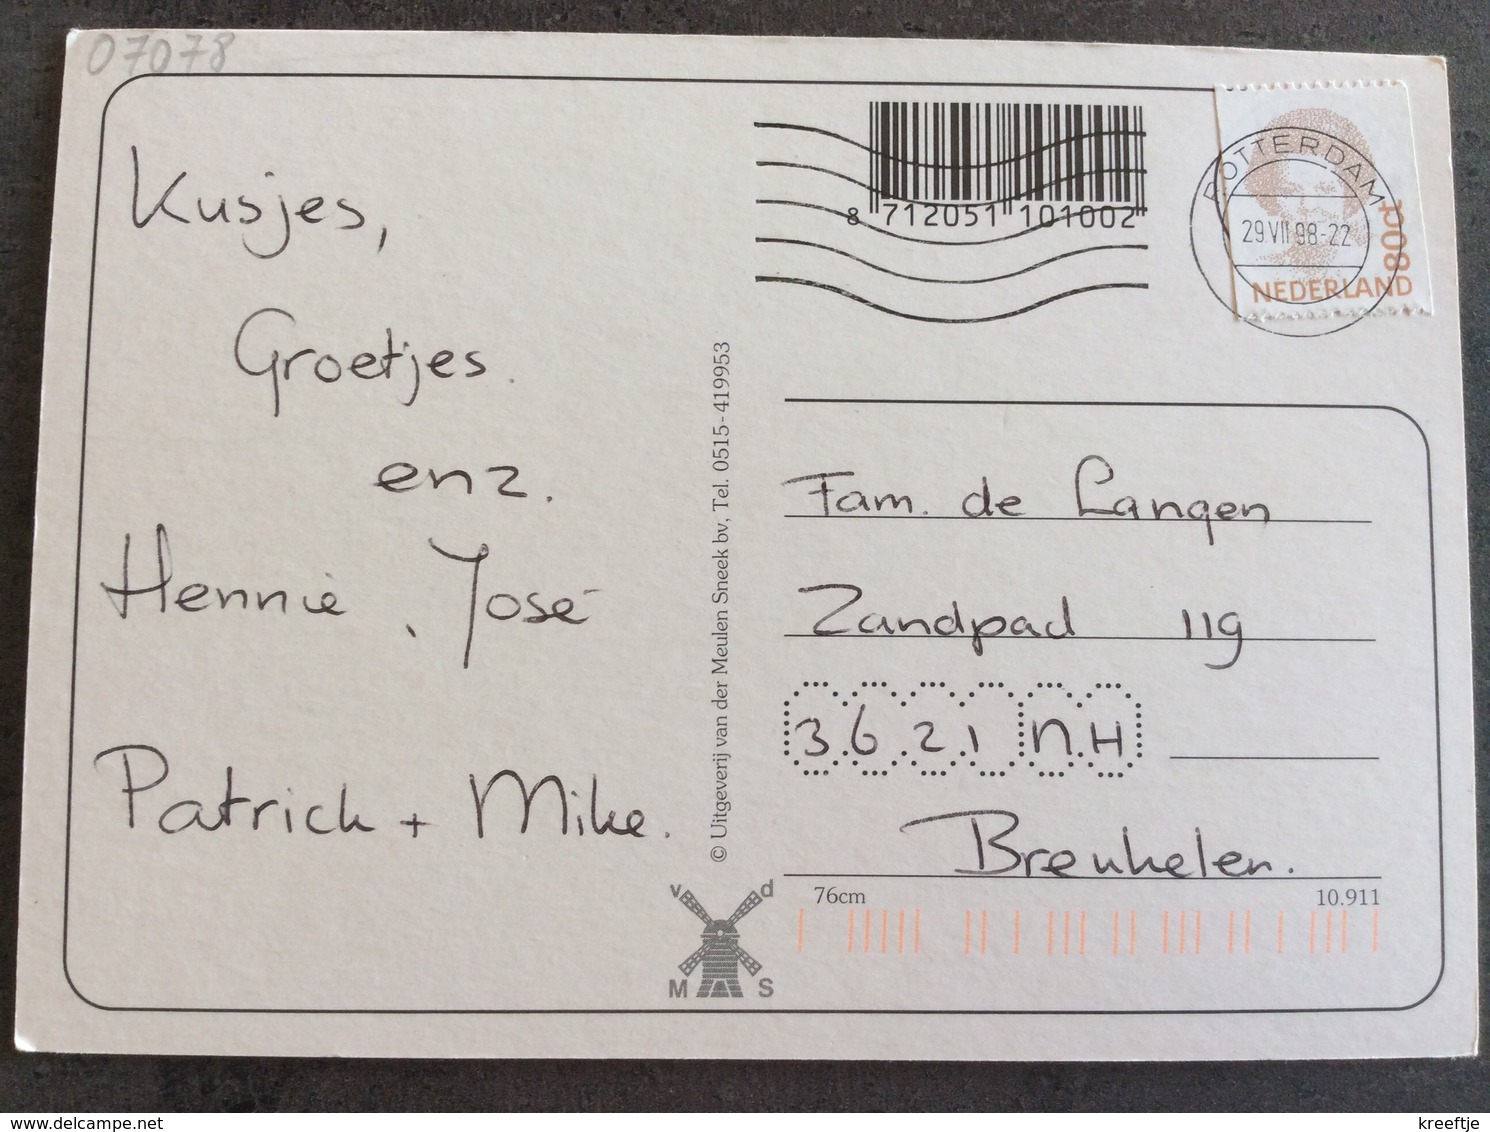 07078
8 712051 101002
ROTTERDAM
29.VII 98-22
80ct
NEDERLAND
Kusjes,
Groetjes.
enz.
Hennie, José
Patrick + Mike.
© Uitgeverij van der Meulen Sneek bv, Tel. 0515-419953
Fam. de Langen
Zandpad 119
3.6.2.1 N.H
Breukelen.
76cm 10.911
v d
M S
kreeftje